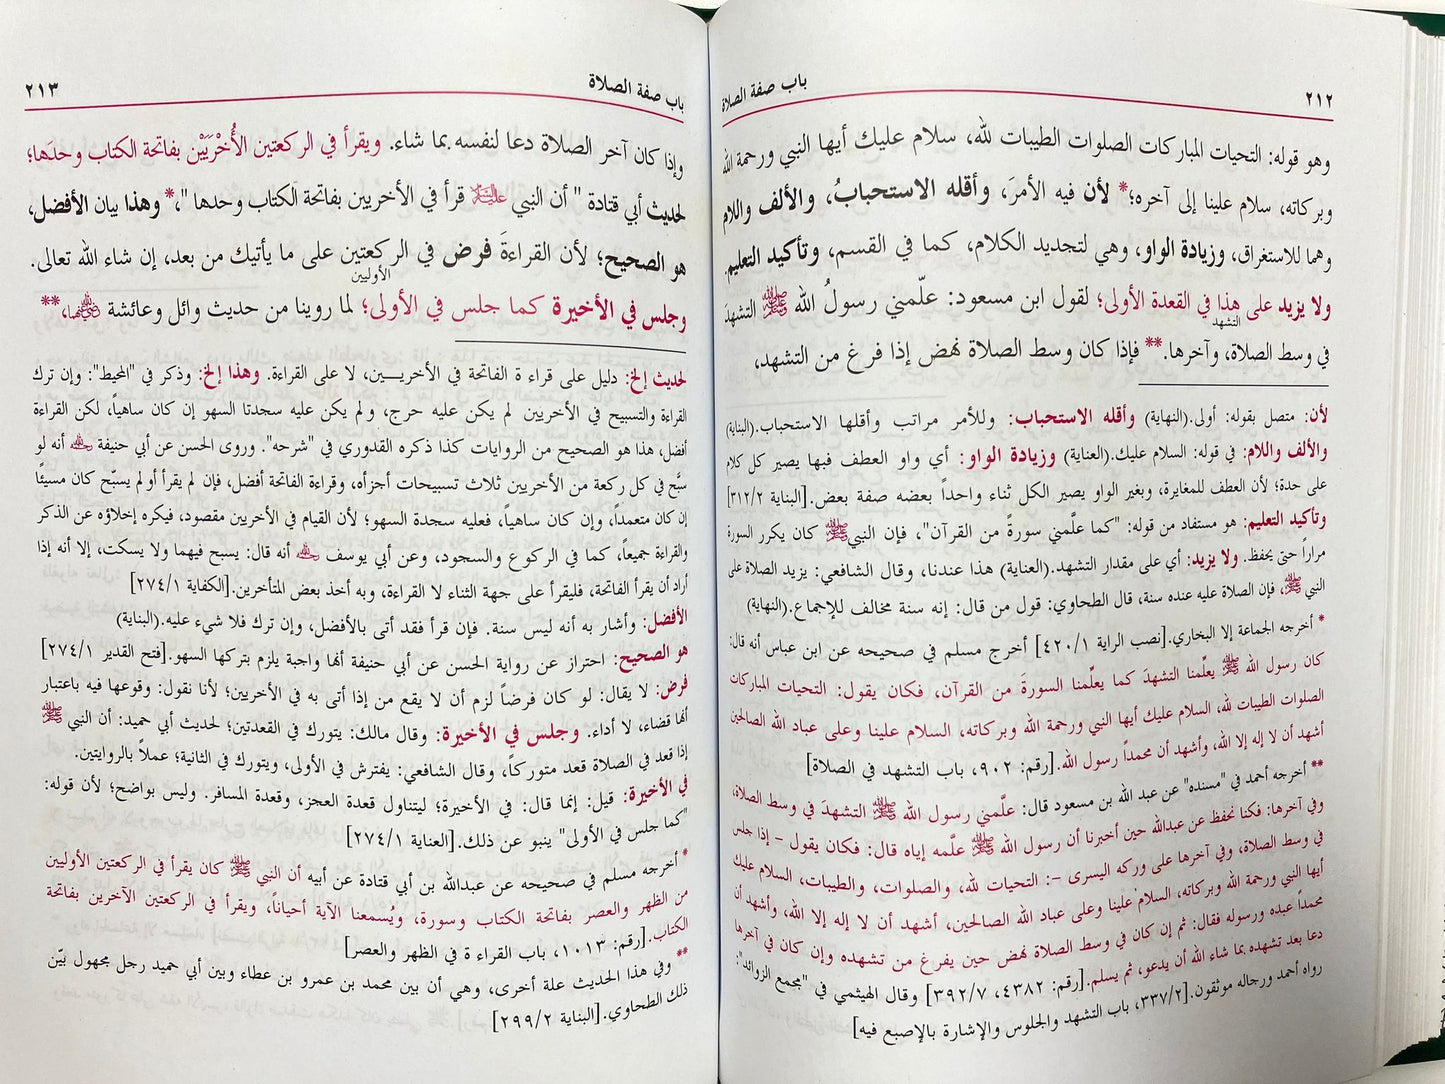 باب صفة الصلاة ٢١٢
وهو قوله: التحيات المباركات الصلوات الطيبات لله، سلام عليك أيها النبي ورحمة الله
وبركاته، سلام علينا إلى آخره؛* لأن فيه الأمرَ، وأقله الاستحبابُ، والألف واللام
وهما للاستغراق، وزيادة الواو، وهي لتجديد الكلام، كما في القسم، وتأكيد التعليم.
ولا يزيد على هذا في القعدة الأولى؛ لقول ابن مسعود: علّمني رسولُ الله ﷺ التشهدَ
التشهد
في وسط الصلاة، وآخرها.** فإذا كان وسط الصلاة نهض إذا فرغ من التشهد،
لأن: متصل بقوله: أولى.(النهاية) وأقله الاستحباب: وللأمر مراتب وأقلها الاستحباب.(البناية)
والألف واللام: في قوله: السلام عليك.(العناية) وزيادة الواو: أي واو العطف فبها يصير كل كلام
على حدة؛ لأن العطف للمغايرة، وبغير الواو يصير الكل ثناء واحداً بعضه صفة بعض.[البناية ٣١٢/٢]
وتأكيد التعليم: هو مستفاد من قوله: "كما علَّمني سورةً من القرآن"، فإن النبيﷺ كان يكرر السورة
مراراً حتى يحفظ. ولا يزيد: أي على مقدار التشهد.(العناية) هذا عندنا، وقال الشافعي: يزيد الصلاة على
النبي ﷺ، فإن الصلاة عليه عنده سنة، قال الطحاوي: قول من قال: إنه سنة مخالف للإجماع.(النهاية)
* أخرجه الجماعة إلا البخاري.[نصب الراية ٤٢٠/١] أخرج مسلم في صحيحه عن ابن عباس أنه قال:
كان رسول الله ﷺ يعلِّمنا التشهدَ كما يعلِّمنا السورةَ من القرآن، فكان يقول: التحيات المباركات
الصلوات الطيبات لله، السلام عليك أيها النبي ورحمة الله وبركاته، السلام علينا وعلى عباد الله الصالحين
أشهد أن لا إله إلا الله، وأشهد أن محمداً رسول الله.[رقم: ٩٠٢، باب التشهد في الصلاة]
** أخرجه أحمد في "مسنده" عن عبد الله بن مسعود قال: علَّمني رسول الله ﷺ التشهدَ في وسط الصلاة،
وفي آخرها: فكنا نحفظ عن عبدالله حين أخبرنا أن رسول الله ﷺ علَّمه إياه قال: فكان يقول – إذا جلس
في وسط الصلاة، وفي آخرها على وركه اليسرى –: التحيات لله، والصلوات، والطيبات، السلام عليك
أيها النبي ورحمة الله وبركاته، السلام علينا وعلى عباد الله الصالحين، أشهد أن لا إله إلا الله، وأشهد أن
محمداً عبده ورسوله فقال: ثم إن كان في وسط الصلاة نهض حين يفرغ من تشهده وإن كان في آخرها
دعا بعد تشهده بما شاء الله أن يدعو، ثم يسلم.[رقم: ٤٣٨٢، ٣٩٢/٧] وقال الهيثمي في "مجمع الزوائد":
رواه أحمد ورجاله موثقون.[٣٣٧/٢، باب التشهد والجلوس والإشارة بالإصبع فيه]
باب صفة الصلاة ٢١٣
وإذا كان آخر الصلاة دعا لنفسه بما شاء. ويقرأ في الركعتين الأُخْرَيَيْن بفاتحة الكتاب وحدَها؛
لحديث أبي قتادة " أن النبي عليه السلام قرأ في الأخريين بفاتحة الكتاب وحدها "،* وهذا بيان الأفضل،
هو الصحيح؛ لأن القراءةَ فرض في الركعتين على ما يأتيك من بعد، إن شاء الله تعالى.
الأوليين
وجلس في الأخيرة كما جلس في الأولى؛ لما روينا من حديث وائل وعائشة رضي الله عنهما،**
لحديث إلخ: دليل على قراءة الفاتحة في الأخريـــين، لا على القراءة. وهذا إلخ: وذكر في "المحيط": وإن ترك
القراءة والتسبيح في الأخريين لم يكن عليه حرج، ولم يكن عليه سجدتا السهو إن كان ساهياً، لكن القراءة
أفضل، هذا هو الصحيح من الروايات كذا ذكره القدوري في "شرحه". وروى الحسن عن أبي حنيفة رحمه الله أنه لو
سبَّح في كل ركعة من الأخريين ثلاث تسبيحات أجزأه، وقراءة الفاتحة أفضل، فإن لم يقرأ أو لم يسبّح كان مسيئًا
إن كان متعمداً، وإن كان ساهياً، فعليه سجدة السهو؛ لأن القيام في الأخريين مقصود، فيكره إخلاؤه عن الذكر
والقراءة جميعاً، كما في الركوع والسجود، وعن أبي يوسف رحمه الله أنه قال: يسبح فيهما ولا يسكت، إلا أنه إذا
أراد أن يقرأ الفاتحة، فليقرأ على جهة الثناء لا القراءة، وبه أخذ بعض المتأخرين.[الكفاية ٢٧٤/١]
الأفضل: وأشار به أنه ليس سنة. فإن قرأ فقد أتى بالأفضل، وإن ترك فلا شيء عليه.(البناية)
هو الصحيح: احتراز عن رواية الحسن عن أبي حنيفة أنها واجبة يلزم بتركها السهو.[فتح القدير ٢٧٤/١]
فرض: لا يقال: لو كان فرضاً لزم أن لا يقع من إذا أتى به في الأخريين؛ لأنا نقول: وقوعها فيه باعتبار
أنها قضاء، لا أداء. وجلس في الأخيرة: وقال مالك: يتورك في القعدتين؛ لحديث أبي حميد: أن النبي ﷺ
إذا قعد في الصلاة قعد متوركاً، وقال الشافعي: يفترش في الأولى، ويتورك في الثانية؛ عملاً بالروايتين.
في الأخيرة: قيل: إنما قال: في الأخيرة؛ ليتناول قعدة العجز، وقعدة المسافر. وليس بواضح؛ لأن قوله:
"كما جلس في الأولى" ينبو عن ذلك.[العناية ٢٧٤/١]
* أخرجه مسلم في صحيحه عن عبدالله بن أبي قتادة عن أبيه أن النبي ﷺ كان يقرأ في الركعتين الأوليين
من الظهر والعصر بفاتحة الكتاب وسورة، ويُسمعنا الآية أحياناً، ويقرأ في الركعتين الآخرين بفاتحة
الكتاب.[رقم: ١٠١٣، باب القراءة في الظهر والعصر]
** وفي هذا الحديث علة أخرى، وهي أن بين محمد بن عمرو بن عطاء وبين أبي حميد رجل مجهول بيّن
ذلك الطحاوي.[البناية ٢٩٩/٢]